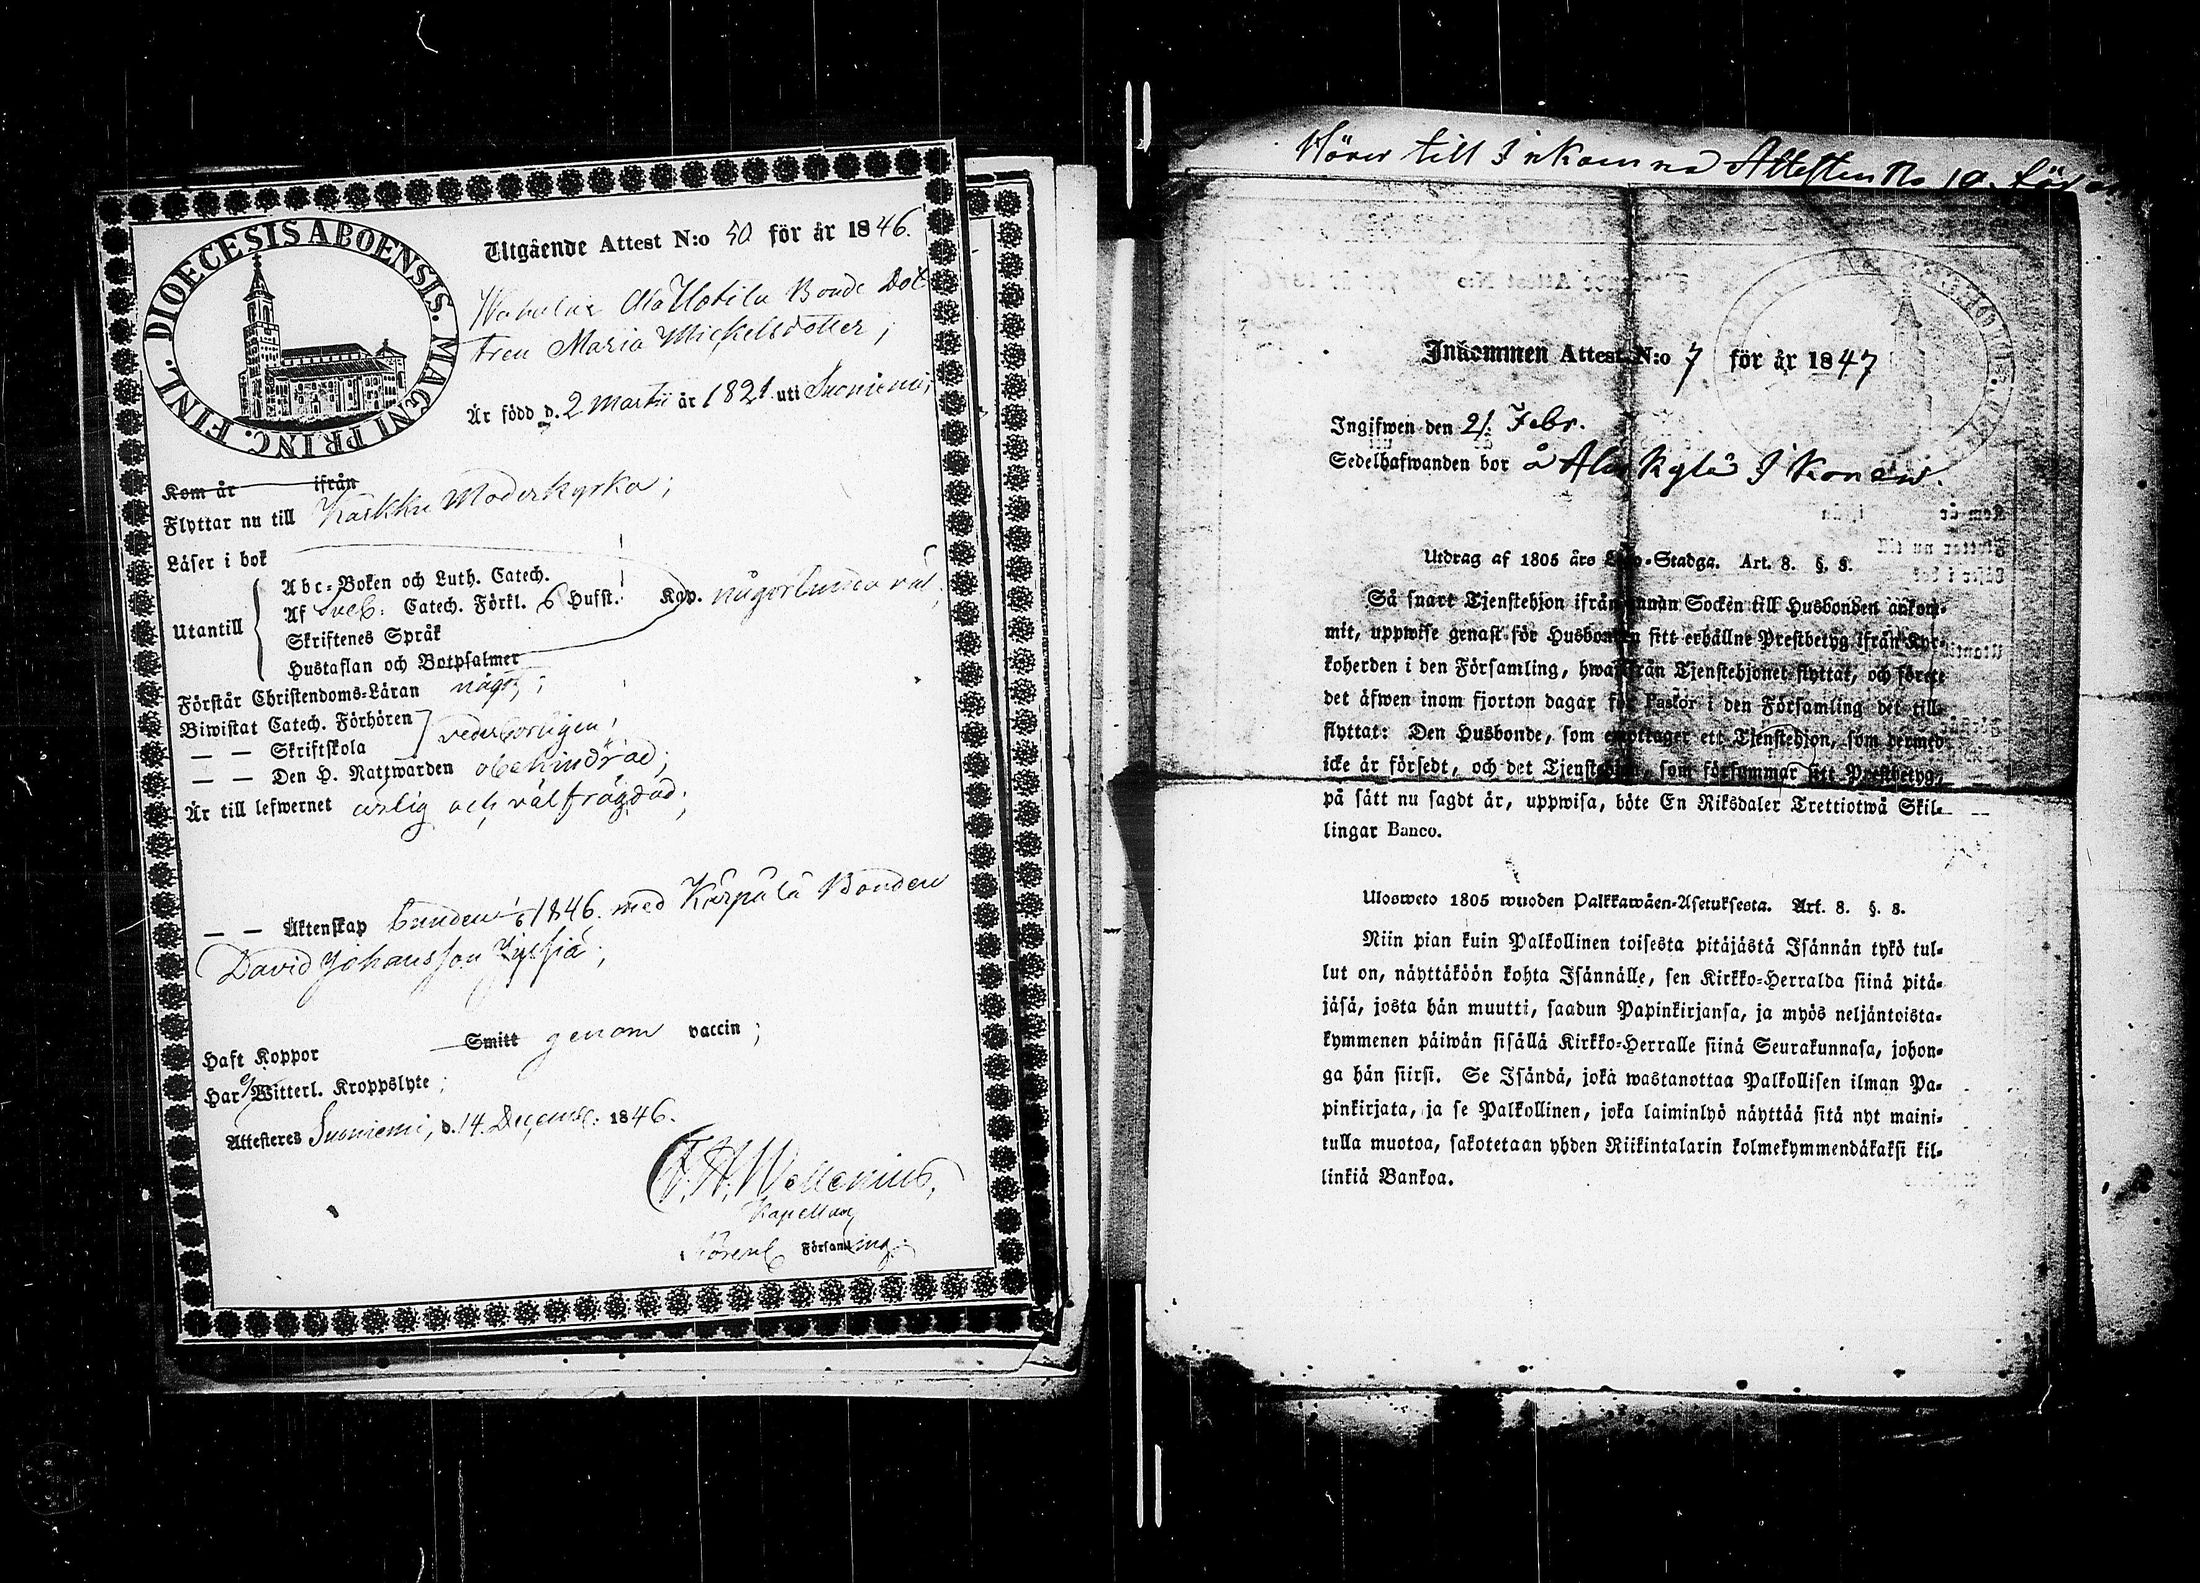 DIOECESIS ABOENSIS. MAGNI PRINC. FINL.
Utgående Attest N:o 50 för år 1846.
Bonde Dot
tren Maria Mickelsdotter;
Är född d. 2 Martii år 1821 uti Suoniemi;
Kom år ifrån
Flyttar nu till Karkku Moderkyrka;
Läser i bok
Utantill
Abc-Boken och Luth. Catech.
Af Sveb: Catech. Förkl. 6 Hufst. Kap. någorlunda väl,
Skriftenes Språk
Hustaflan och Botpsalmer
Förstår Christendoms-Läran någ:;
Biwistat Catech. Förhören
— — Skriftskola vederbörligen;
— — Den H. Nattwarden obehindrad;
Är till lefwernet ärlig och välfrägdad;
— — Äktenskap bunden 1846 med Kärpälä Bonden
David Johansson
Haft Koppor Smitt genom vaccin;
Har ej Witterl. Kroppslyte;
Attesteres Suoniemi, d. 14 Decemb: 1846.
F. H. Wallenius,
Kapellan
Församling.
Hörer till Inkomna Attesten No 10. för
Inkommen Attest N:o 7 för år 1847
Ingifwen den 21. Febr.
Sedelhafwanden bor å
Utdrag af 1805 års Lego-Stadga. Art. 8. §. 8.
Så snart Tjenstehjon ifrån annan Socken till Husbonden ankom-
mit, uppwise genast för Husbonden sitt erhållne Prestbetyg ifrån Kyr-
koherden i den Församling, hwarifrån Tjenstehjonet flyttat, och förete
det äfwen inom fjorton dagar för Pastor i den Församling det till-
flyttat: Den Husbonde, som emottager ett Tjenstehjon, som dermed
icke är försedt, och det Tjenstehjon, som försummar sitt Prestbetyg,
på sätt nu sagdt är, uppwisa, böte En Riksdaler Trettiotwå Skil-
lingar Banco.
Ulosweto 1805 wuoden Palkkawäen-Asetuksesta. Art. 8. §. 8.
Niin pian kuin Palkollinen toisesta pitäjästä Isännän tykö tul-
lut on, näyttäköön kohta Isännälle, sen Kirkko-Herralda siinä pitä-
jäsä, josta hän muutti, saadun Papinkirjansa, ja myös neljäntoista-
kymmenen päiwän sisällä Kirkko-Herralle siinä Seurakunnasa, johon-
ga hän siirsi. Se Isändä, joka wastanottaa Palkollisen ilman Pa-
pinkirjata, ja se Palkollinen, joka laiminlyö näyttää sitä nyt maini-
tulla muotoa, sakotetaan yhden Riikintalarin kolmekymmendäkaksi kil-
linkiä Bankoa.